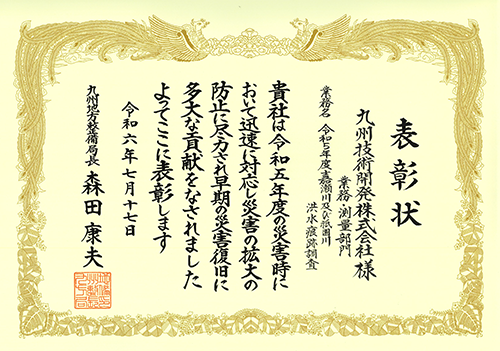 表彰状
九州技術開発株式会社 様
業務・測量部門
業務名 令和5年度嘉瀬川及び祇園川
洪水痕跡調査
貴社は令和五年度の災害時に
おいて迅速に対応し災害の拡大の
防止に尽力され早期の災害復旧に
多大な貢献をなされました
よってここに表彰します
令和六年七月十七日
九州地方整備局長 森田康夫